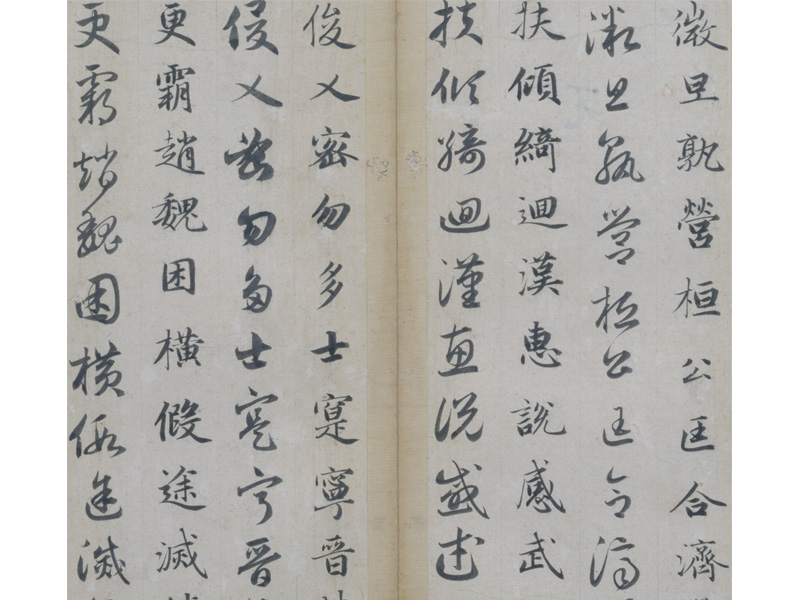 微旦孰營桓公匡合濟
微旦孰營桓公匡合濟
扶傾綺迴漢惠說感武
扶傾綺迴漢惠說感武
俊乂密勿多士寔寧晉
俊乂密勿多士寔寧晉
更霸趙魏困橫假途滅
更霸趙魏困橫假途滅